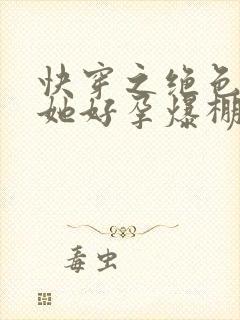 快穿之绝色
她好孕爆棚
毒虫